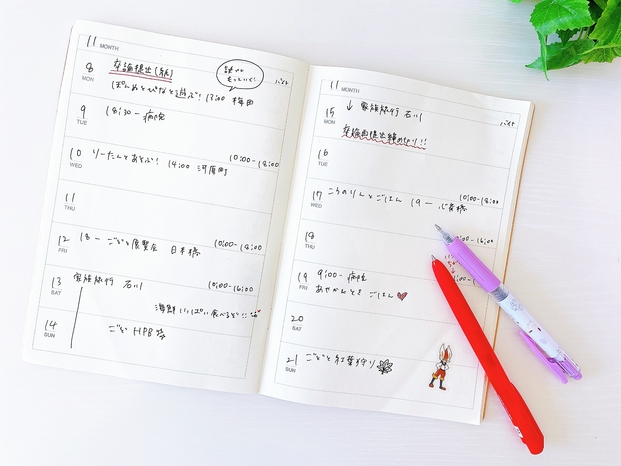 11 MONTH
8 MON
卒論提出(仮)
ぽんぬとぴなと遊ぶ! 13:00 梅田
バイト
9 TUE
18:30 - 病院
10 WED
りーたんとあそぶ! 14:00 河原町
10:00-18:00
11 THU
12 FRI
18 - ごどと展覧会 日本橋
10:00-18:00
13 SAT
家族旅行 石川
10:00-16:00
海鮮いっぱい食べるぞ!!
14 SUN
ごど HPB
11 MONTH
15 MON
↓ 家族旅行 石川
バイト
卒論提出締め切り!!
16 TUE
17 WED
こうのりんとごはん 19 - 心斎橋
10:00-18:00
18 THU
19 FRI
9:00- 病院
あやかんとき ごはん
20 SAT
21 SUN
ごどと紅葉狩り